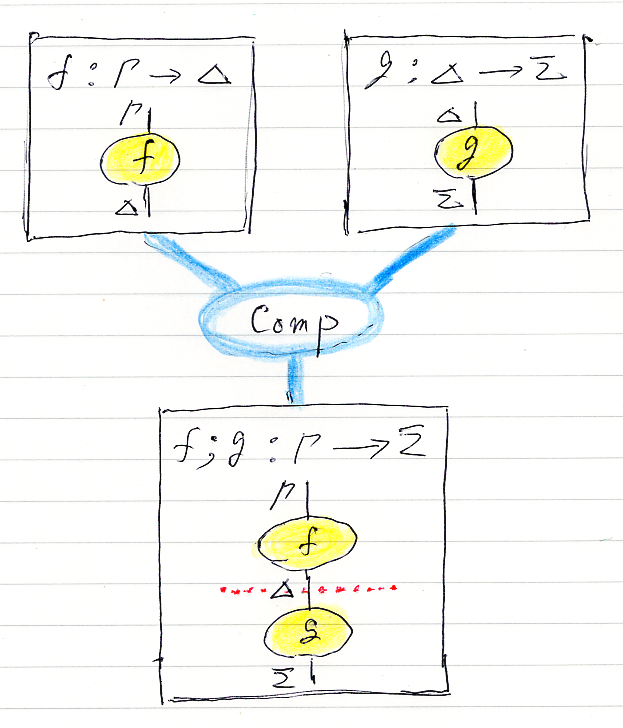 f : Γ → Δ
Γ
f
Δ
g : Δ → Σ
Δ
g
Σ
Comp
f;g : Γ → Σ
Γ
f
Δ
g
Σ